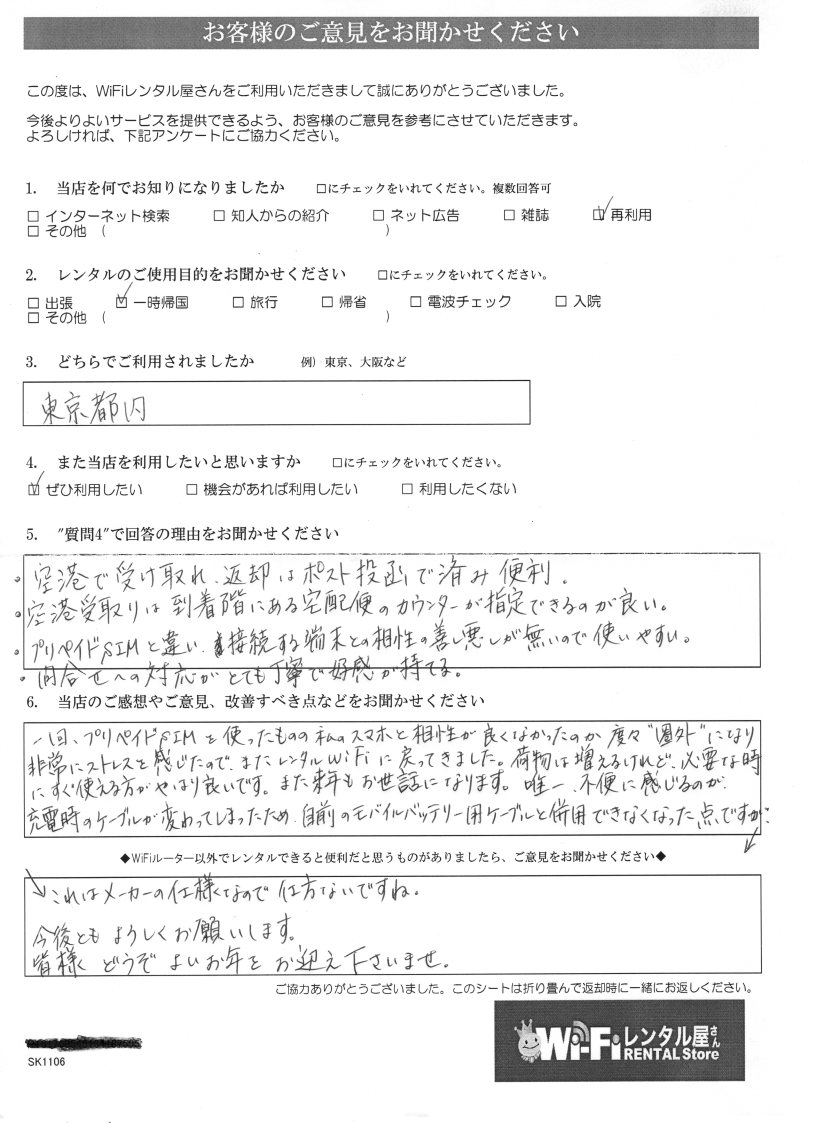 お客様のご意見をお聞かせください
この度は、WiFiレンタル屋さんをご利用いただきまして誠にありがとうございました。
今後よりよいサービスを提供できるよう、お客様のご意見を参考にさせていただきます。
よろしければ、下記アンケートにご協力ください。
1. 当店を何でお知りになりましたか □にチェックをいれてください。複数回答可
□ インターネット検索 □ 知人からの紹介 □ ネット広告 □ 雑誌 ☑ 再利用
□ その他 ( )
2. レンタルのご使用目的をお聞かせください □にチェックをいれてください。
□ 出張 ☑ 一時帰国 □ 旅行 □ 帰省 □ 電波チェック □ 入院
□ その他 ( )
3. どちらでご利用されましたか 例) 東京、大阪など
東京都内
4. また当店を利用したいと思いますか □にチェックをいれてください。
☑ ぜひ利用したい □ 機会があれば利用したい □ 利用したくない
5. "質問4"で回答の理由をお聞かせください
・空港で受け取れ、返却はポスト投函で済み便利。
・空港受取りは到着階にある宅配便のカウンターが指定できるのが良い。
・プリペイドSIMと違い、接続する端末との相性の善し悪しが無いので使いやすい。
・問合せへの対応がとても丁寧で好感が持てる。
6. 当店のご感想やご意見、改善すべき点などをお聞かせください
一回、プリペイドSIMを使ったものの私のスマホと相性が良くなかったのか度々"圏外"になり
非常にストレスと感じたので、またレンタルWiFiに戻ってきました。荷物は増えるけれど、必要な時
にすぐ使える方がやはり良いです。また来年もお世話になります。唯一、不便に感じるのが、
充電時のケーブルが変わってしまったため、自前のモバイルバッテリー用ケーブルと併用できなくなった点、ですが、
◆WiFiルーター以外でレンタルできると便利だと思うものがありましたら、ご意見をお聞かせください◆
これはメーカーの仕様なので仕方ないですね。
今後ともよろしくお願いします。
皆様、どうぞよいお年をお迎え下さいませ。
ご協力ありがとうございました。このシートは折り畳んで返却時に一緒にお返しください。
SK1106
Wi-Fiレンタル屋さん
RENTAL Store